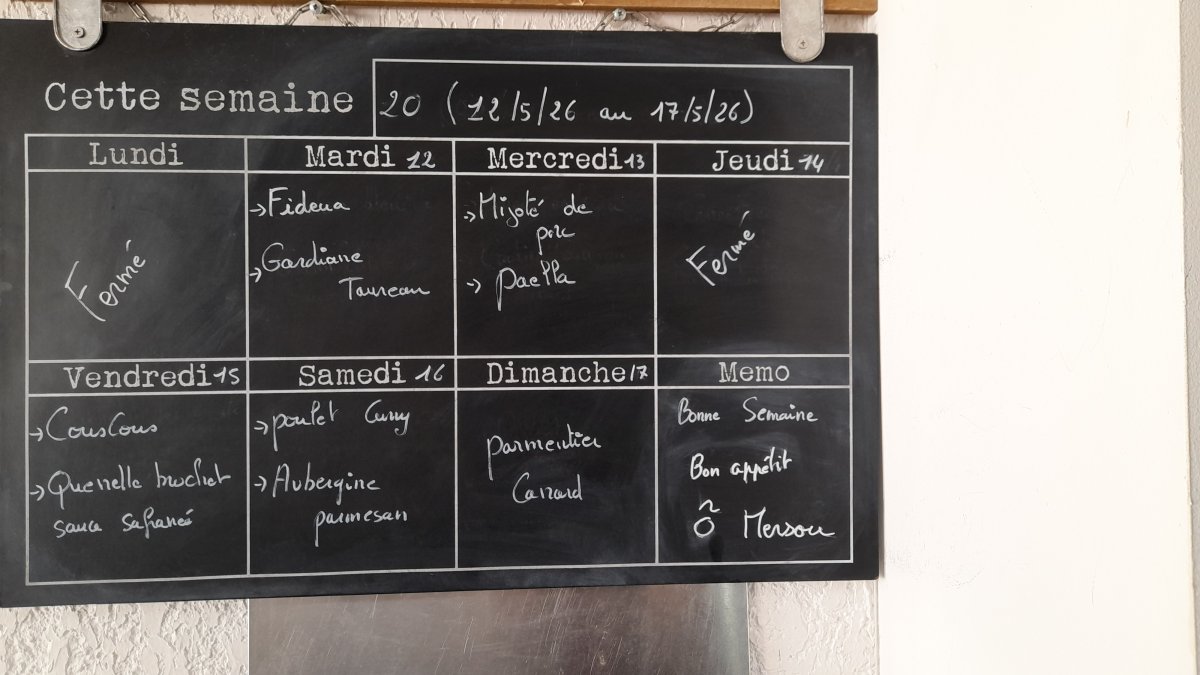 Cette semaine 20 (12/5/26 au 17/5/26)
Lundi
Fermé
Mardi 12
→ Fideua
→ Gardiane
Taureau
Mercredi 13
→ Mijoté de
porc
→ paella
Jeudi 14
Fermé
Vendredi 15
→ Couscous
→ Quenelle brochet
sauce safranée
Samedi 16
→ poulet Curry
→ Aubergine
parmesan
Dimanche 17
parmentier
Canard
Memo
Bonne Semaine
Bon appétit
Õ Mersou